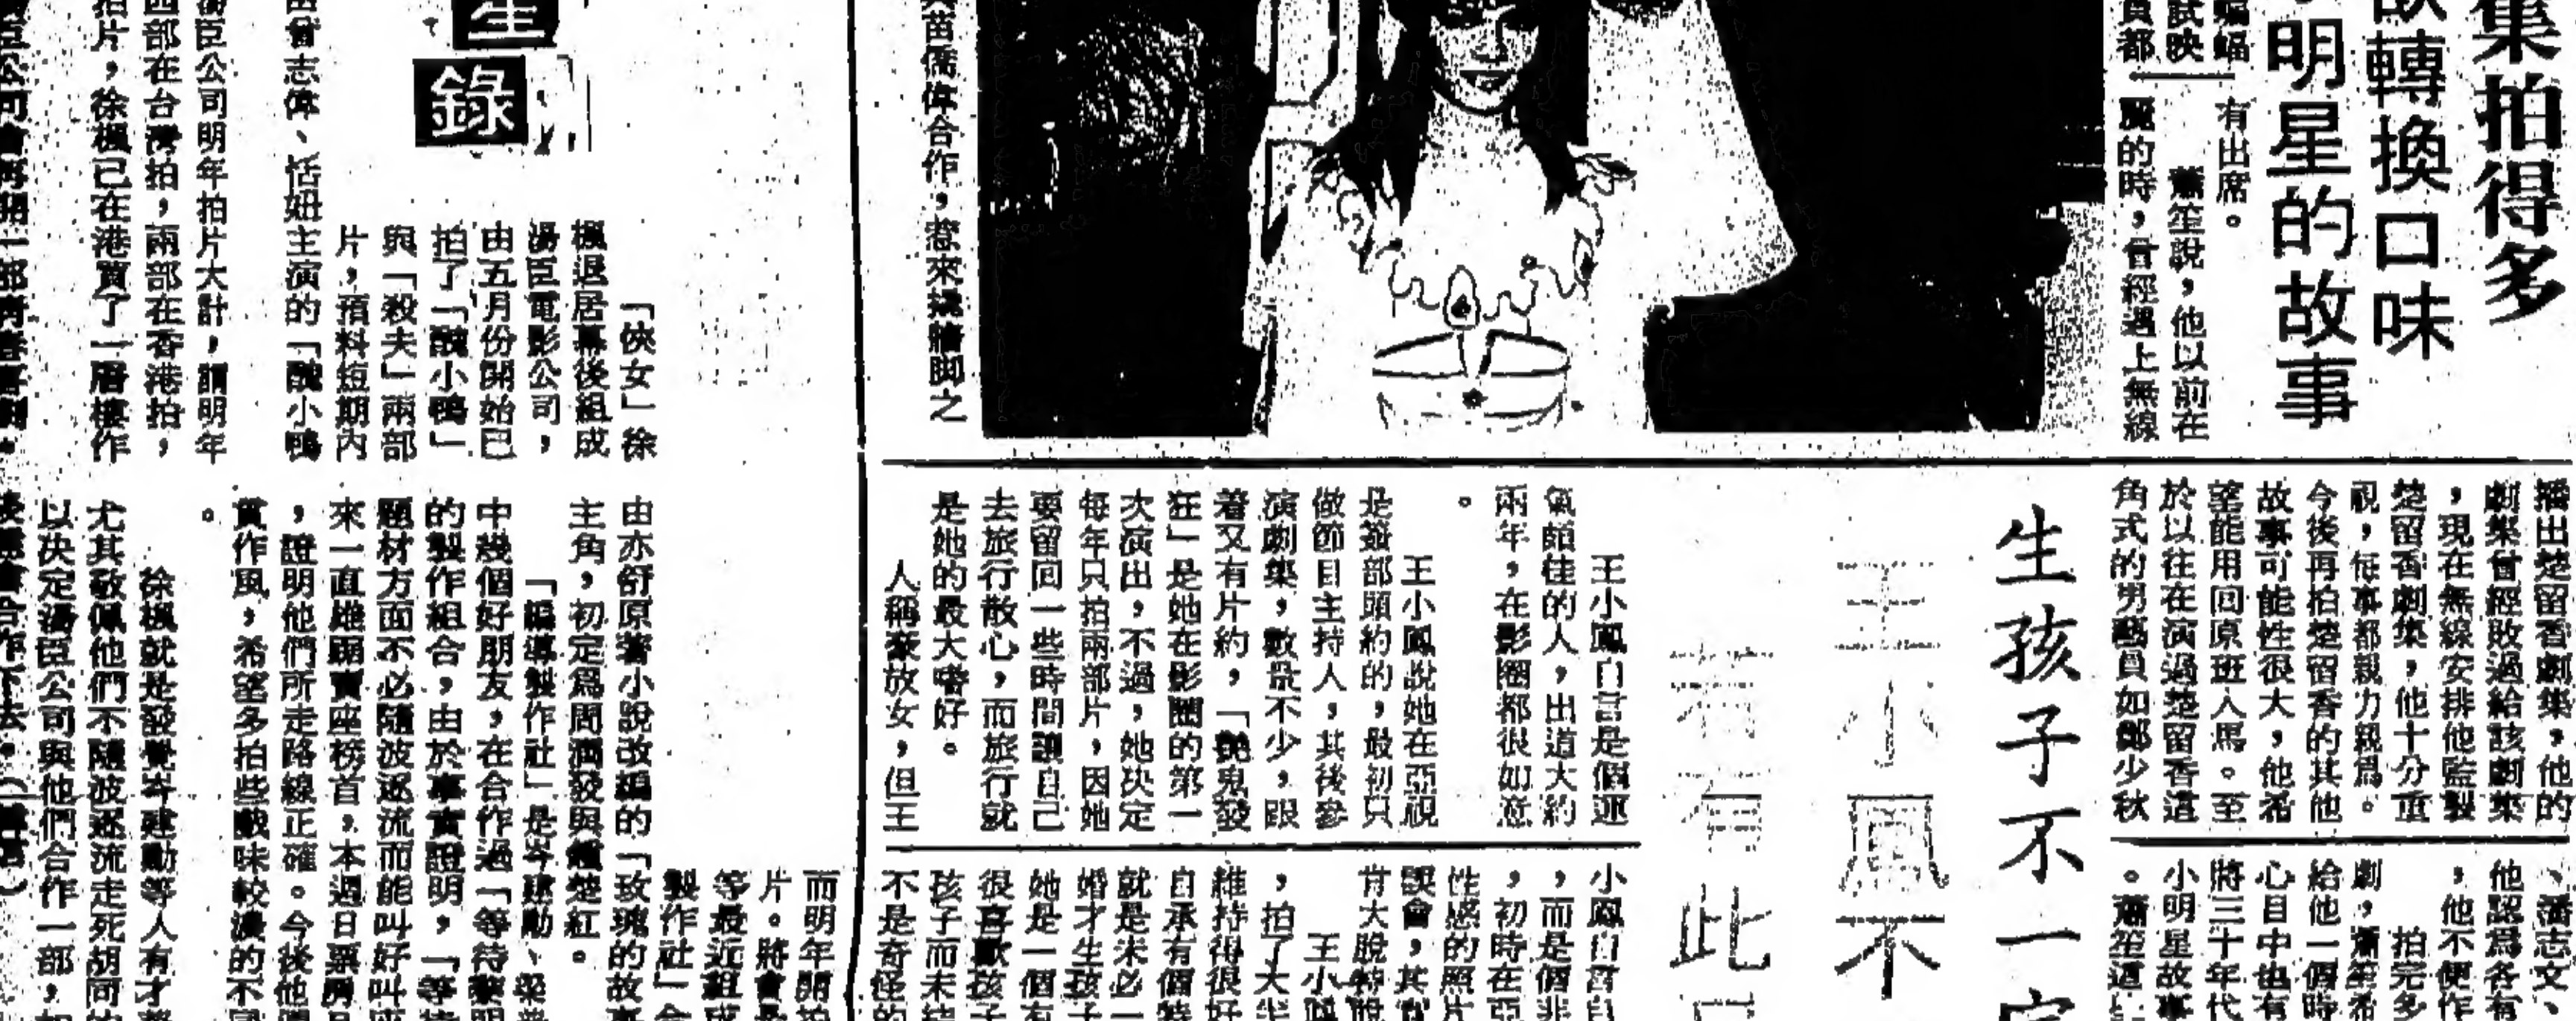 集拍得多
轉換口味
明星的故事
蝙蝠
試映
員都
有出席。
蕭笙說，他以前在
麗的時，曾經遇上無線
播出楚留香劇集，他的
劇集曾經敗過給該劇集
，現在無線安排他監製
楚留香劇集，他十分重
視，每事都親力親爲。
今後再拍楚留香的其他
故事可能性很大，他希
望能用回原班人馬。至
於以往在演過楚留香這
角式的男藝員如鄭少秋
、潘志文、
他認爲各有
，他不便作
拍完多
劇，蕭笙希
給他一個時
心目中也有
將三十年代
小明星故事
。蕭笙道
苗僑偉合作，惹來撬牆脚之
生孩子不一定
王小鳳不
若有此
王小鳳自言是個運
氣頗佳的人，出道大約
兩年，在影圈都很如意
。
王小鳳說她在亞視
是簽部頭約的，最初只
做節目主持人，其後參
演劇集，數量不少，跟
着又有片約，「艷鬼發
狂」是她在影圈的第一
次演出，不過，她決定
每年只拍兩部片，因她
要留回一些時間讓自己
去旅行散心，而旅行就
是她的最大嗜好。
人稱豪放女，但王
小鳳自言
，而是個非
，初時在亞
性感的照片
誤會，其實
肯大脫特脫
王小鳳
，拍了大半
維持得很好
自承有個特
就是未必一
婚才生孩子
她是一個
很喜歡孩子
孩子而未結
不是奇怪的
星
錄
「俠女」徐
楓退居幕後組成
湯臣電影公司，
由五月份開始已
拍了「醜小鴨」
與「殺夫」兩部
片，預料短期內
曾志偉、恬妞主演的「醜小鴨
湯臣公司明年拍片大計，謂明年
四部在台灣拍，兩部在香港拍，
拍片，徐楓已在港買了一層樓作
而明年開拍
片。將會
等最近組成
製作社」合
由亦舒原著小說改編的「玫瑰的故事
主角，初定爲周潤發與鍾楚紅。
「編導製作社」是岑建勳、梁
中幾個好朋友，在合作過「等待黎明
的製作組合，由於事實證明，「等待
題材方面不必隨波逐流而能叫好叫座
來一直雄踞賣座榜首，本週日票房
，證明他們所走路線正確。今後他們
貫作風，希望多拍些戲味較濃的不同
。
徐楓就是發覺岑建勳等人有才華
尤其敬佩他們不隨波逐流走死胡同的
以決定湯臣公司與他們合作一部，如
合作下去。